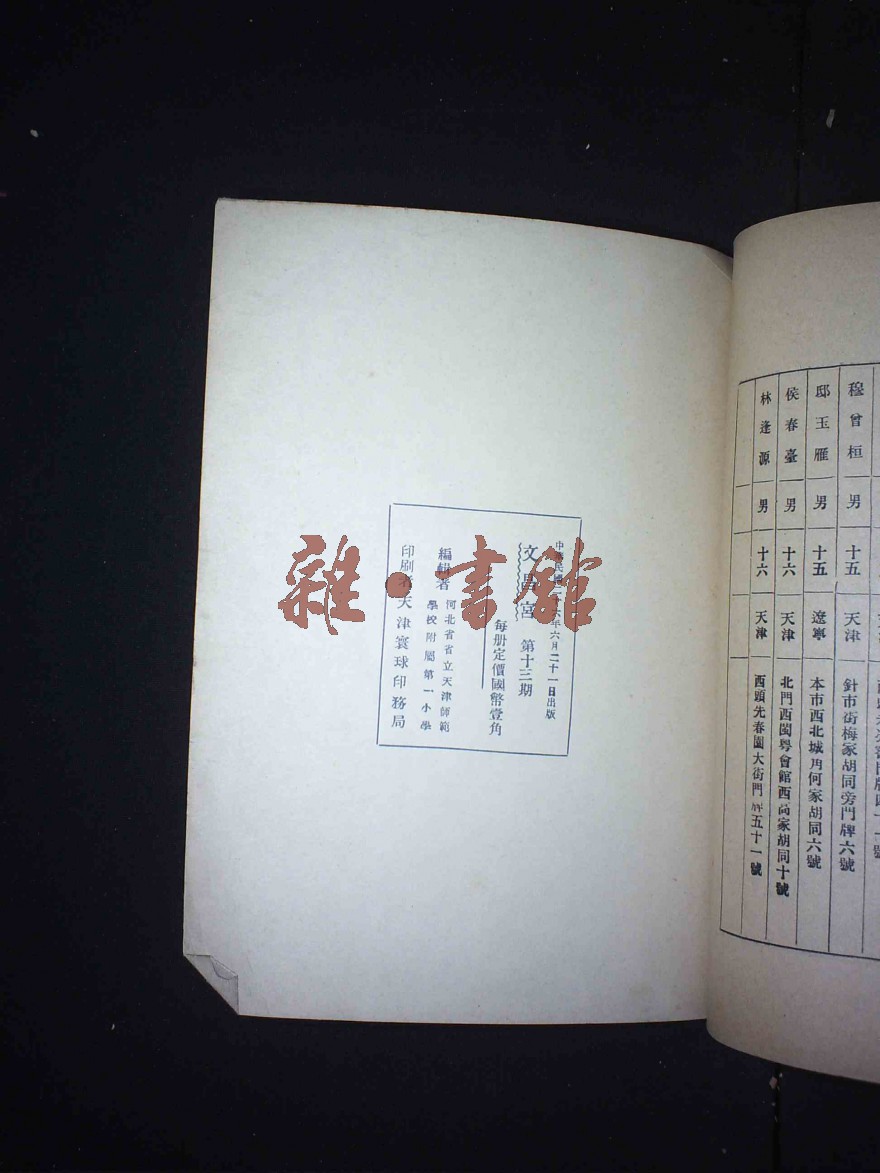 穆曾桓 男 十五 天津 針市街梅家胡同旁門牌六號
邸玉雁 男 十五 遼寧 本市西北城角何家胡同六號
侯春臺 男 十六 天津 北門西閩粵會館西高家胡同十號
林逢源 男 十六 天津 西頭先春園大街門牌五十一號
中華民國二十六年六月二十一日出版
文昌宮 第十三期
每册定價國幣壹角
編輯者 河北省省立天津師範
學校附屬第一小學
印刷者天津寰球印務局
雜·書館